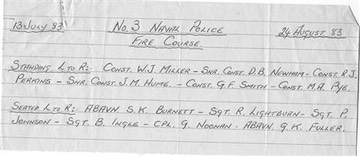 13 July 83 No. 3 NAVAL POLICE 24 AUGUST 83
FIRE COURSE.
STANDING L TO R: CONST. W.J. MILLER - SNR. CONST. D.B. NEWHAM - CONST. R.J.
PERKINS - SNR. CONST. J.M. HUME. - CONST. G.F. SMITH - CONST. M.A. PYE.
SEATED L TO R: ABAVN. S.K. BURNETT - SGT. R. LIGHTBURN - SGT. P.
JOHNSON - SGT. B. INGLE - CPL. G. NOONAN - ABAVN. G.K. FULLER.